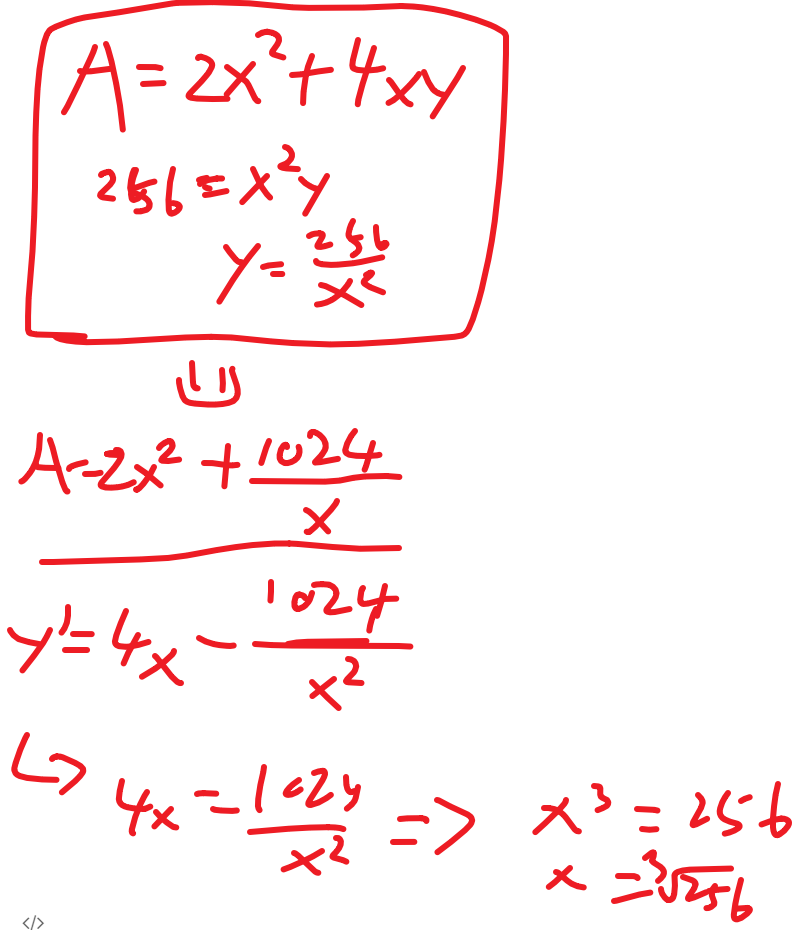 A = 2x² + 4xy
256 = x²y
y = 256/x²
A = 2x² + 1024/x
y' = 4x - 1024/x²
↳ 4x = 1024/x² => x³ = 256
x = ³√256
</>